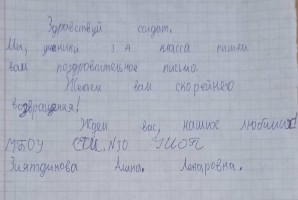 Здравствуй солдат.
Мы, ученики 1 А класса пишем
вам поздравительное письмо.
Желаем вам скорейнего
возвращения!
Ждем вас, нашие любимые!
МБОУ СОШ №10 УИОП
Зиятдинова Алина. Ленаровна.